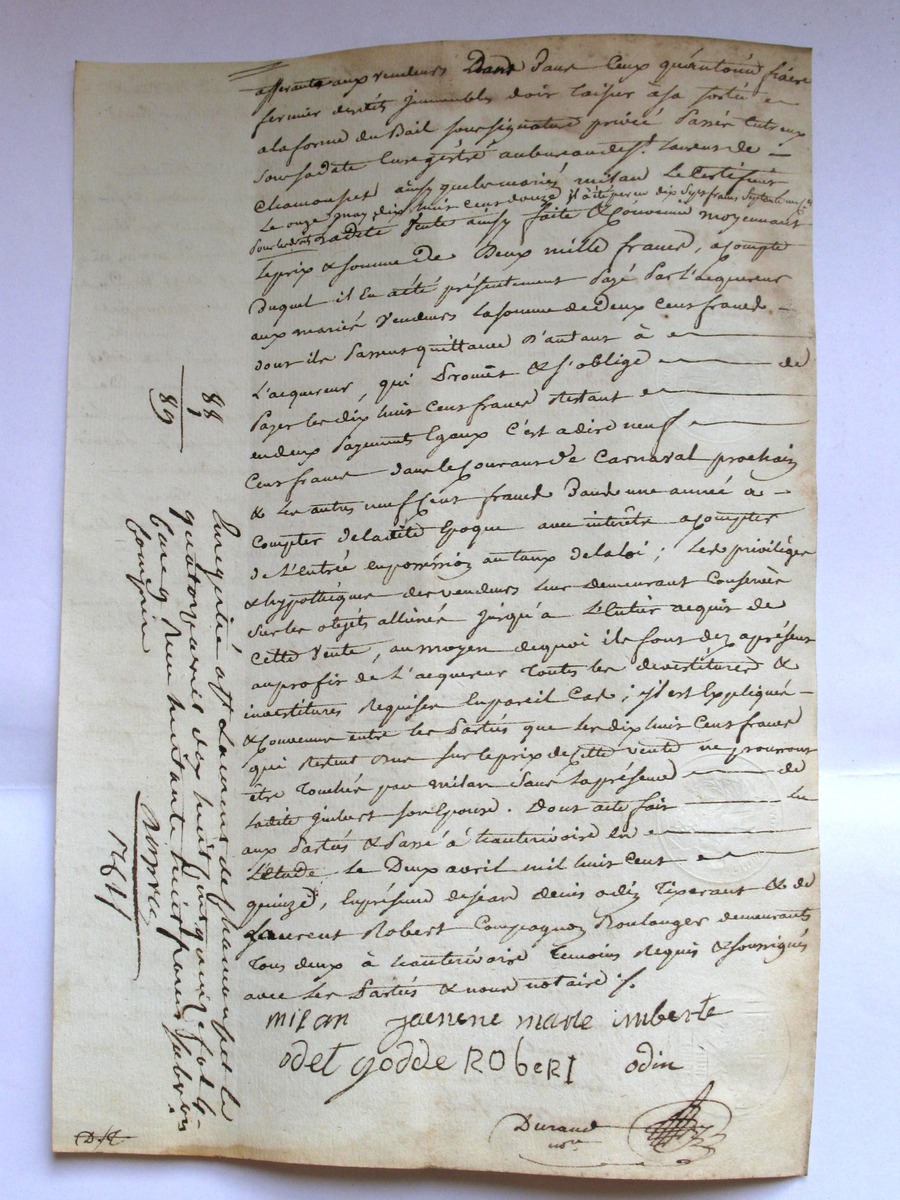 afferante aux vendeurs Dans dans Ceux qu'antoine frère
fermier desdits jmmeubles doit laisser asa sortie
alaforme du Bail soussignature privée Passée Entreux
sous sadate Enregistré aubureau de st. Laurent de
chamousset ainsy que les mariés milan Le Certifient
Le onze dix huit Cent douze il a été perçu dix francs
Ladite Vente ainsy faite & Convenue moyennant
Le prix & somme De Deux mille francs, acompte
Duquel il En a été présentement Payé Par l'acquereur
aux mariés Vendeurs la somme de Deux Cent francs
dont ils Passent quittance D'autant à
L'acquereur, qui Promet & s'oblige de
Payer les dix huit Cent francs Restant
en deux Payements Egaux C'est adire neuf
Cent francs dans le Courant De Carnaval prochain
& Les autres neuf Cent francs Dans une année à
Compter de ladite Epoque avec intérêts acompter
de L'entrée en possession au taux de la loi ; Les privilèges
& hypothèques des vendeurs leur demeurant Conservés
sur les objets alliénés jusqu'a L'Entier acquit de
Cette Vente, au moyen dequoi ils font dez apresent
au profit de L'acquereur Toutes les devestitures &
investitures Requises En pareil Cas ; il est Expliqué
& Convenu entre les Parties que les dix huit Cent francs
qui Restent Dus sur le prix de Cette Vente ne pourront
être Touchés par milan Sans la présence de
Ladite jmbert son Epouse. Dont acte fait lu
aux Parties & Passé à hauterivoire En
L'étude, Le Deux avril mil huit Cent
quinze, En présence de jean denis odin Tixerant & de
Laurent Robert Compagnon Boulanger demeurants
Tous deux à hauterivoire Temoins Requis & soussignés
avec Les Parties & nous notaire ./.
milan jaenene marie imberte
odet godde RObeRt odin
Durand
nore
88
1
89
Enregistré à st Laurent de chamousset le
quatorze avril dix huit cent quinze fol.
Reçu
compris